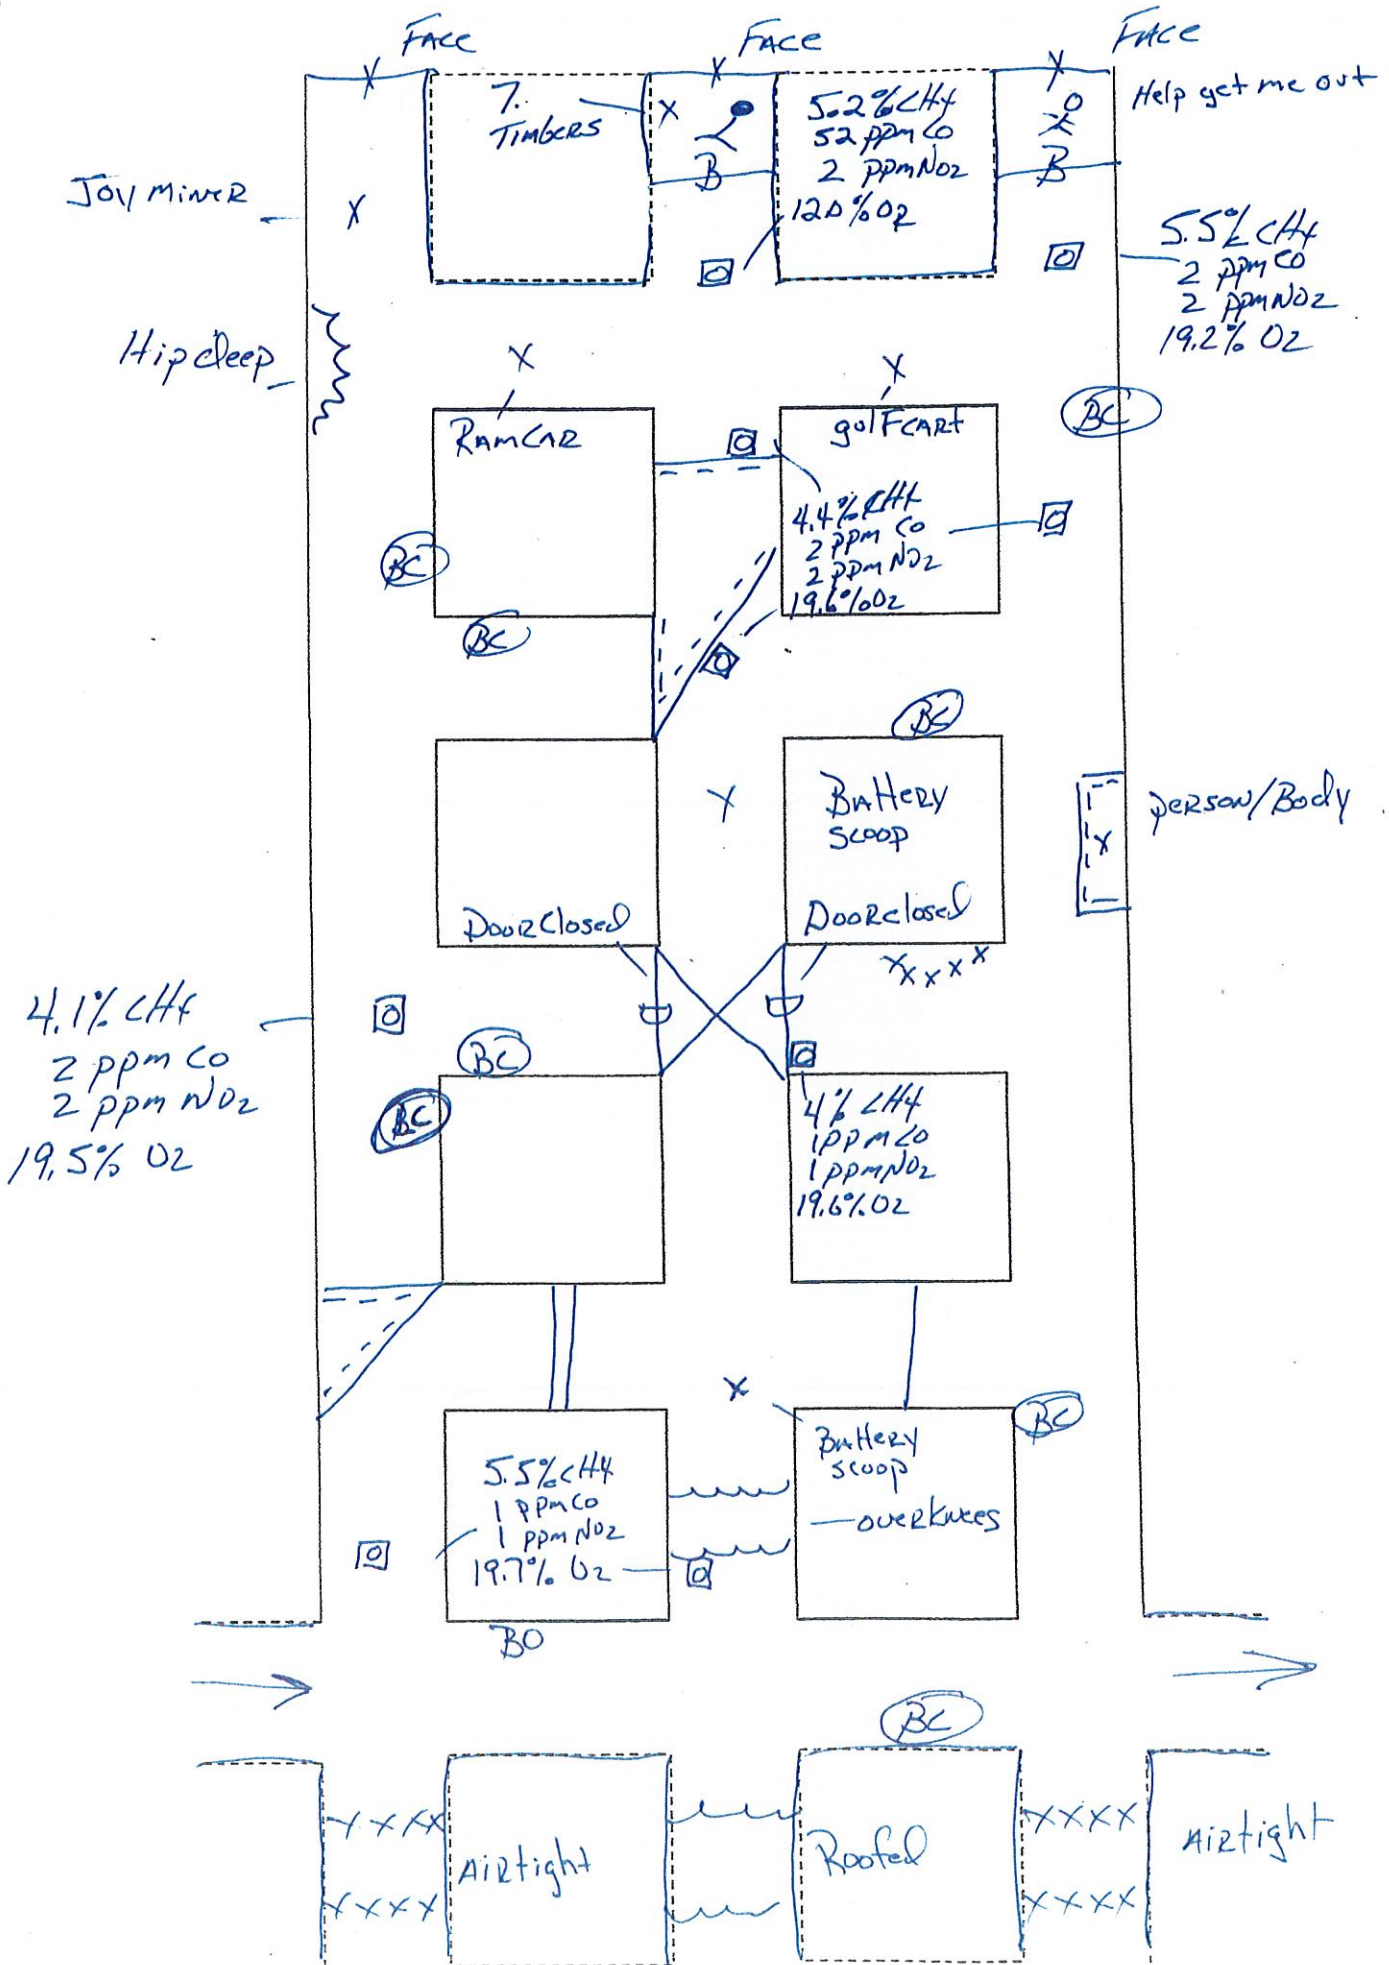 FACE
FACE
FACE
Help get me out
7.
TIMBERS
5.2% CH4
52 ppm CO
2 ppm NO2
12.0% O2
B
B
JOY MINER
5.5% CH4
2 ppm CO
2 ppm NO2
19.2% O2
Hip deep
RAMCAR
golFCART
BC
4.4% CH4
2 ppm CO
2 ppm NO2
19.6% O2
BC
BC
BC
BATTERY
SCOOP
PERSON/Body
DOOR Closed
DOOR closed
XXXXX
4.1% CH4
2 ppm CO
2 ppm NO2
19.5% O2
BC
BC
4% CH4
1 ppm CO
1 ppm NO2
19.6% O2
BC
BATTERY
SCOOP
OVERKNEES
5.5% CH4
1 ppm CO
1 ppm NO2
19.7% O2
BO
BC
XXXX
XXXX
AIRtight
Roofed
AIRtight
XXXX
XXXX